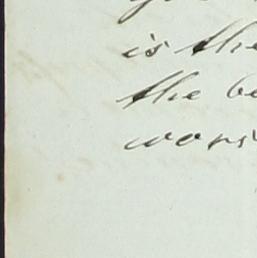 is the
the be
wors